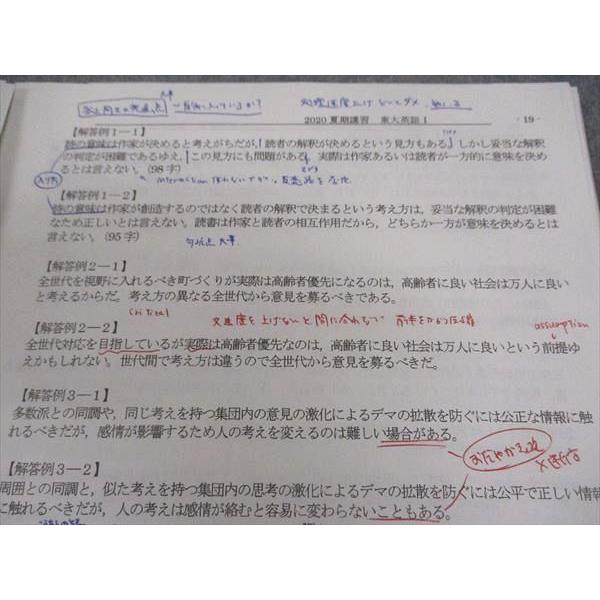 2020 夏期講習　東大英語 I　- 19 -
【解答例1－1】
詩の意味は作家が決めると考えがちだが,「読者の解釈が決めるという見方もある」しかし妥当な解釈
の判定が困難であるゆえ,この見方にも問題がある。実際は作家あるいは読者が一方的に意味を決め
るとは言えない。(98字)
【解答例1－2】
詩の意味は作家が創造するのではなく読者の解釈で決まるという考え方は，妥当な解釈の判定が困難
なため正しいとは言えない。読書は作家と読者の相互作用だから，どちらか一方が意味を決めるとは
言えない。(95字)
【解答例2－1】
全世代を視野に入れるべき町づくりが実際は高齢者優先になるのは，高齢者に良い社会は万人に良い
と考えるからだ。考え方の異なる全世代から意見を募るべきである。
assumption
【解答例2－2】
全世代対応を目指しているが実際は高齢者優先なのは，高齢者に良い社会は万人に良いという前提ゆ
えかもしれない。世代間で考え方は違うので全世代から意見を募るべきだ。
【解答例3－1】
多数派との同調や，同じ考えを持つ集団内の意見の激化によるデマの拡散を防ぐには公正な情報に触
れるべきだが，感情が影響するため人の考えを変えるのは難しい場合がある。
【解答例3－2】
周囲との同調と，似た考えを持つ集団内の思考の激化によるデマの拡散を防ぐには公平で正しい情報
に触れるべきだが，人の考えは感情が絡むと容易に変わらないこともある。